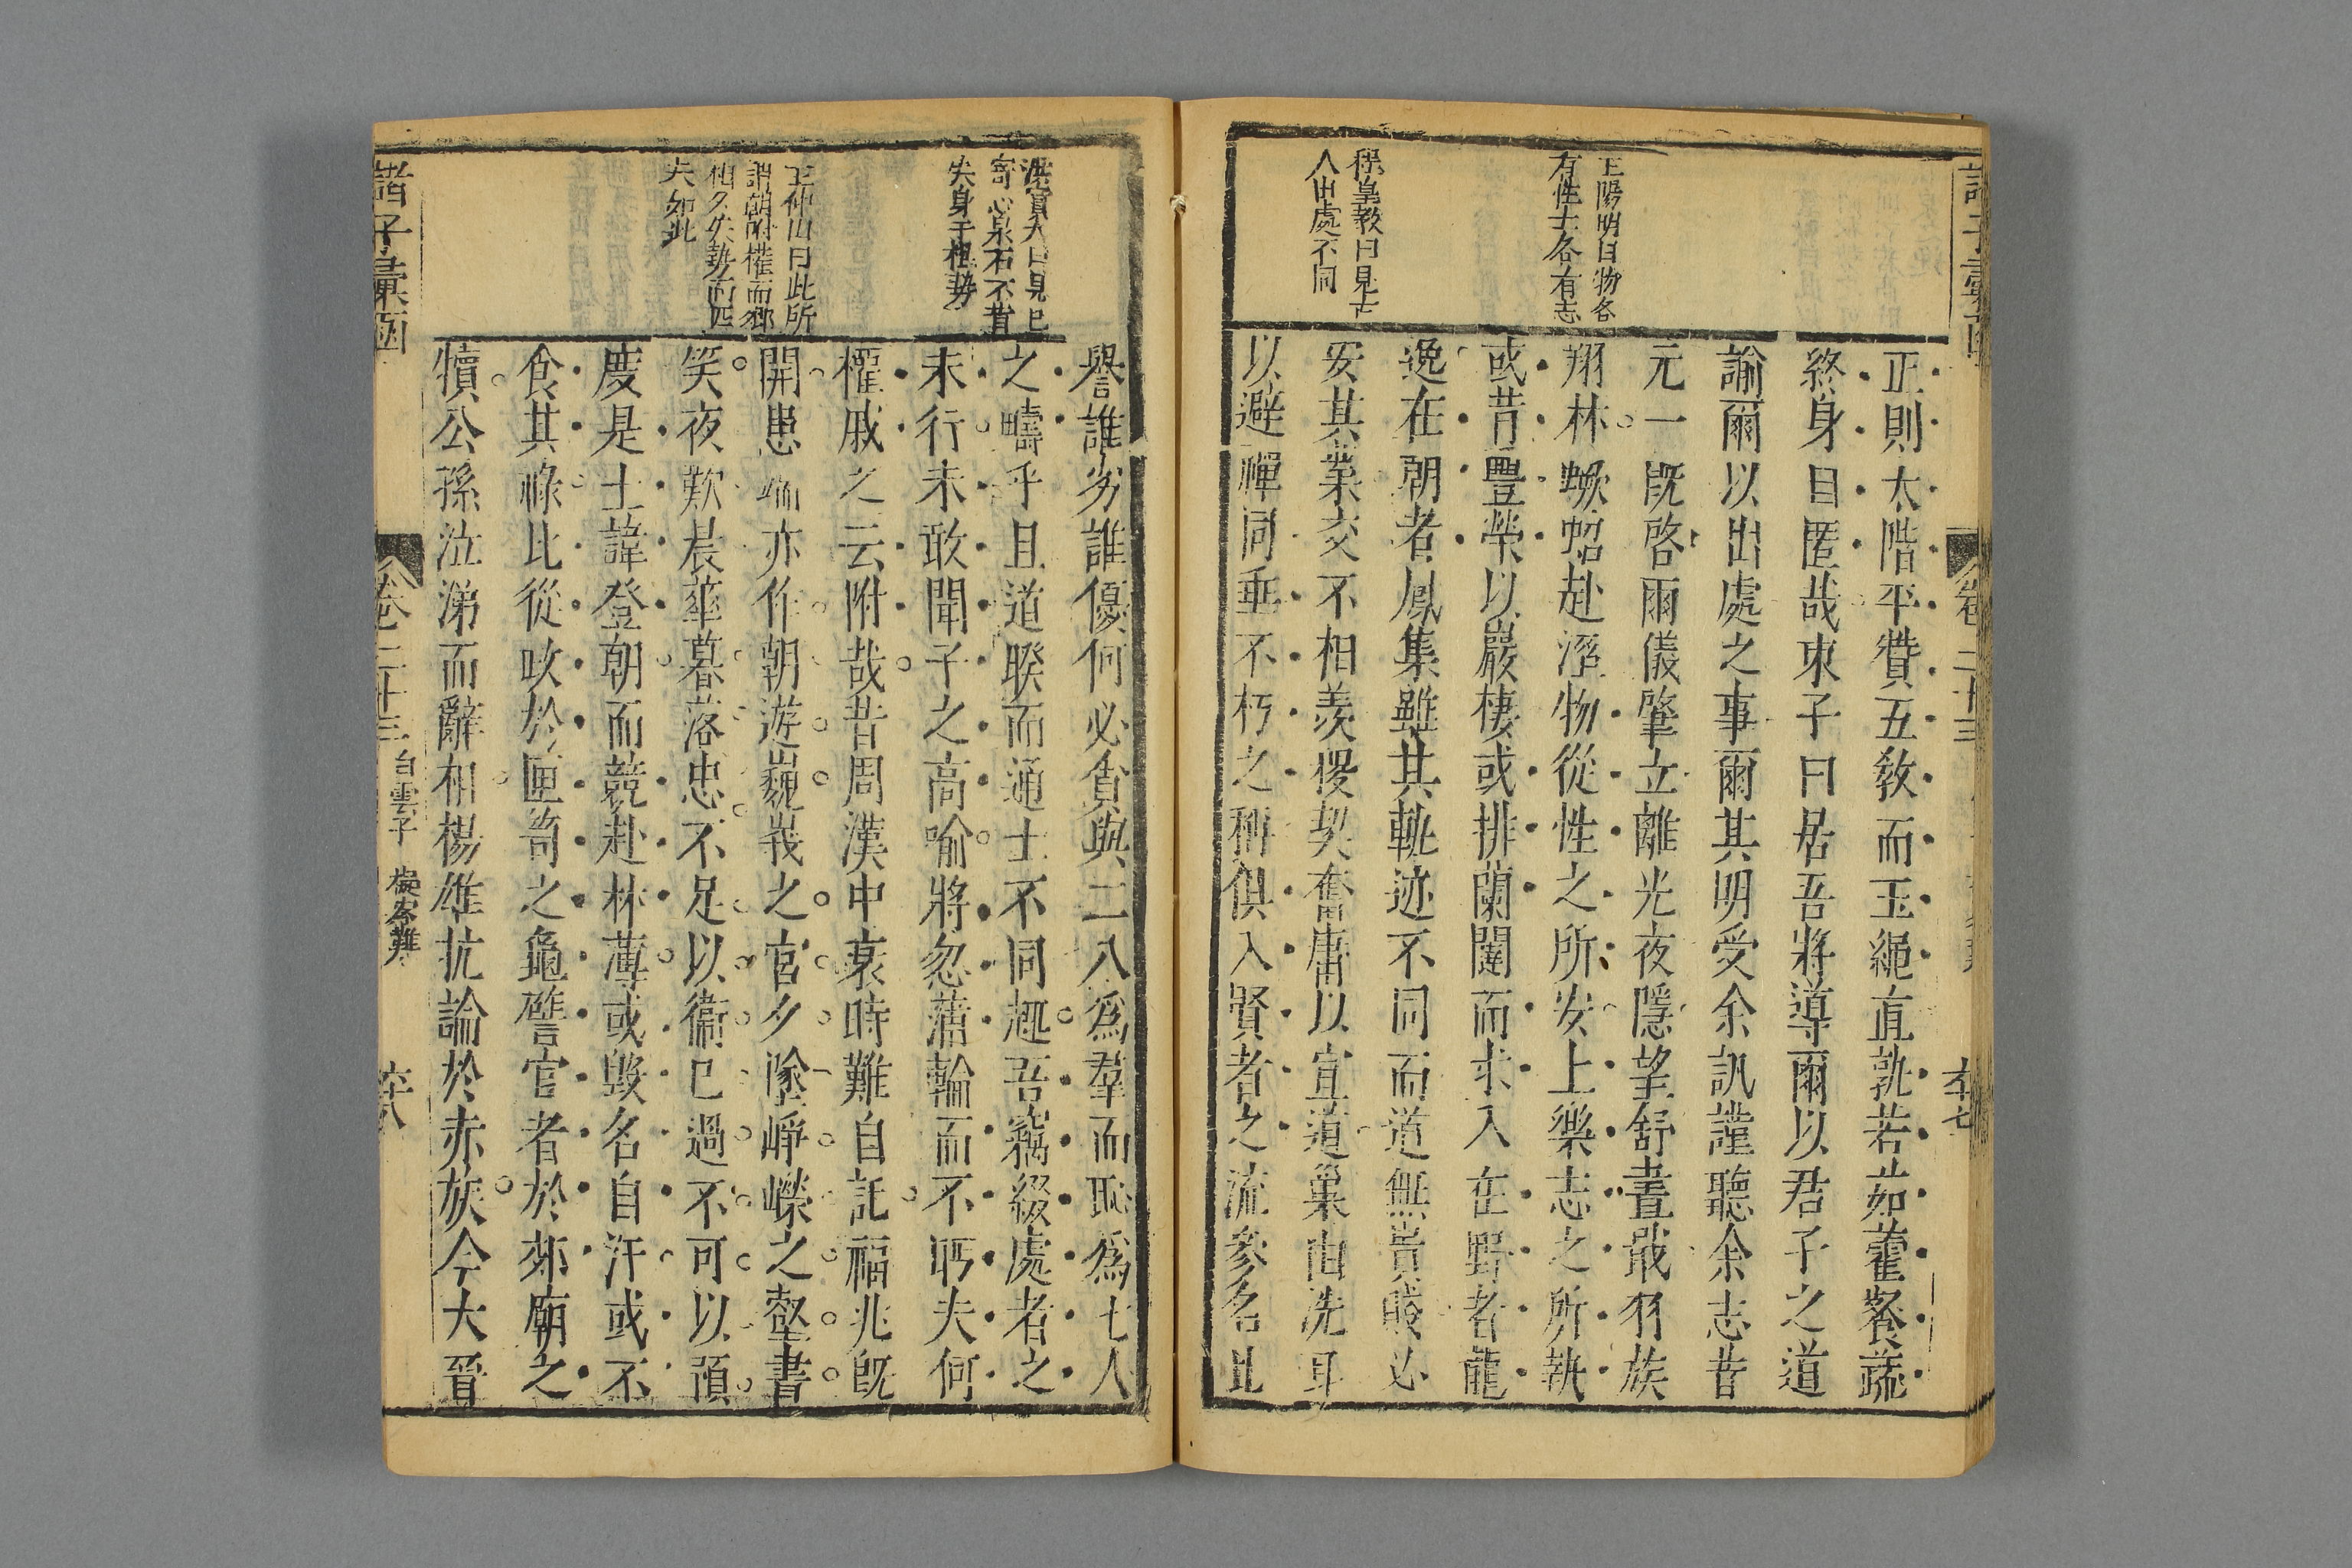 王陽明曰物各
有性士各有志
程皇敦曰見古
人出處不同
正則太階平贊五教而玉繩直孰若茹藿餐蔬
終身自匿哉束子曰居吾將導爾以君子之道
諭爾以出處之事爾其明受余訊謹聽余志昔
元一既啓兩儀肇立離光夜隱望舒晝戢羽族
翔林蟩蛁赴溼物從性之所安士樂志之所執
或背豐榮以巖棲或排蘭闥而求入在野者龍
逸在朝者鳳集雖其軌迹不同而道無貴賤必
安其業交不相羨稷契奮庸以宣道巢由洗耳
以避禪同垂不朽之稱俱入賢者之流參名比
卷二十三
六十七
人曰見已
寄心泉石不肯
失身于權勢
王仲山曰此所
謂朝附權而鄉
相夕失勢而匹
夫如此
譽誰劣誰優何必貪與二八爲羣而恥爲七人
之疇乎且道睽而通士不同趣吾竊綴處者之
末行未敢聞子之高喻將忽蒲輪而不眄夫何
權戚之云附哉昔周漢中衰時難自託福兆既
開患端亦作朝遊巍峩之宮夕墜崢嶸之壑晝
笑夜歎晨華暮落忠不足以衞己過不可以預
度是士諱登朝而競赴林薄或毀名自汙或不
食其祿比從政於匣笥之龜譬官者於郊廟之
犢公孫泣涕而辭相楊雄抗論於赤族今大晉
諸子彙函
卷二十三
白雲子
擬客難
六十八